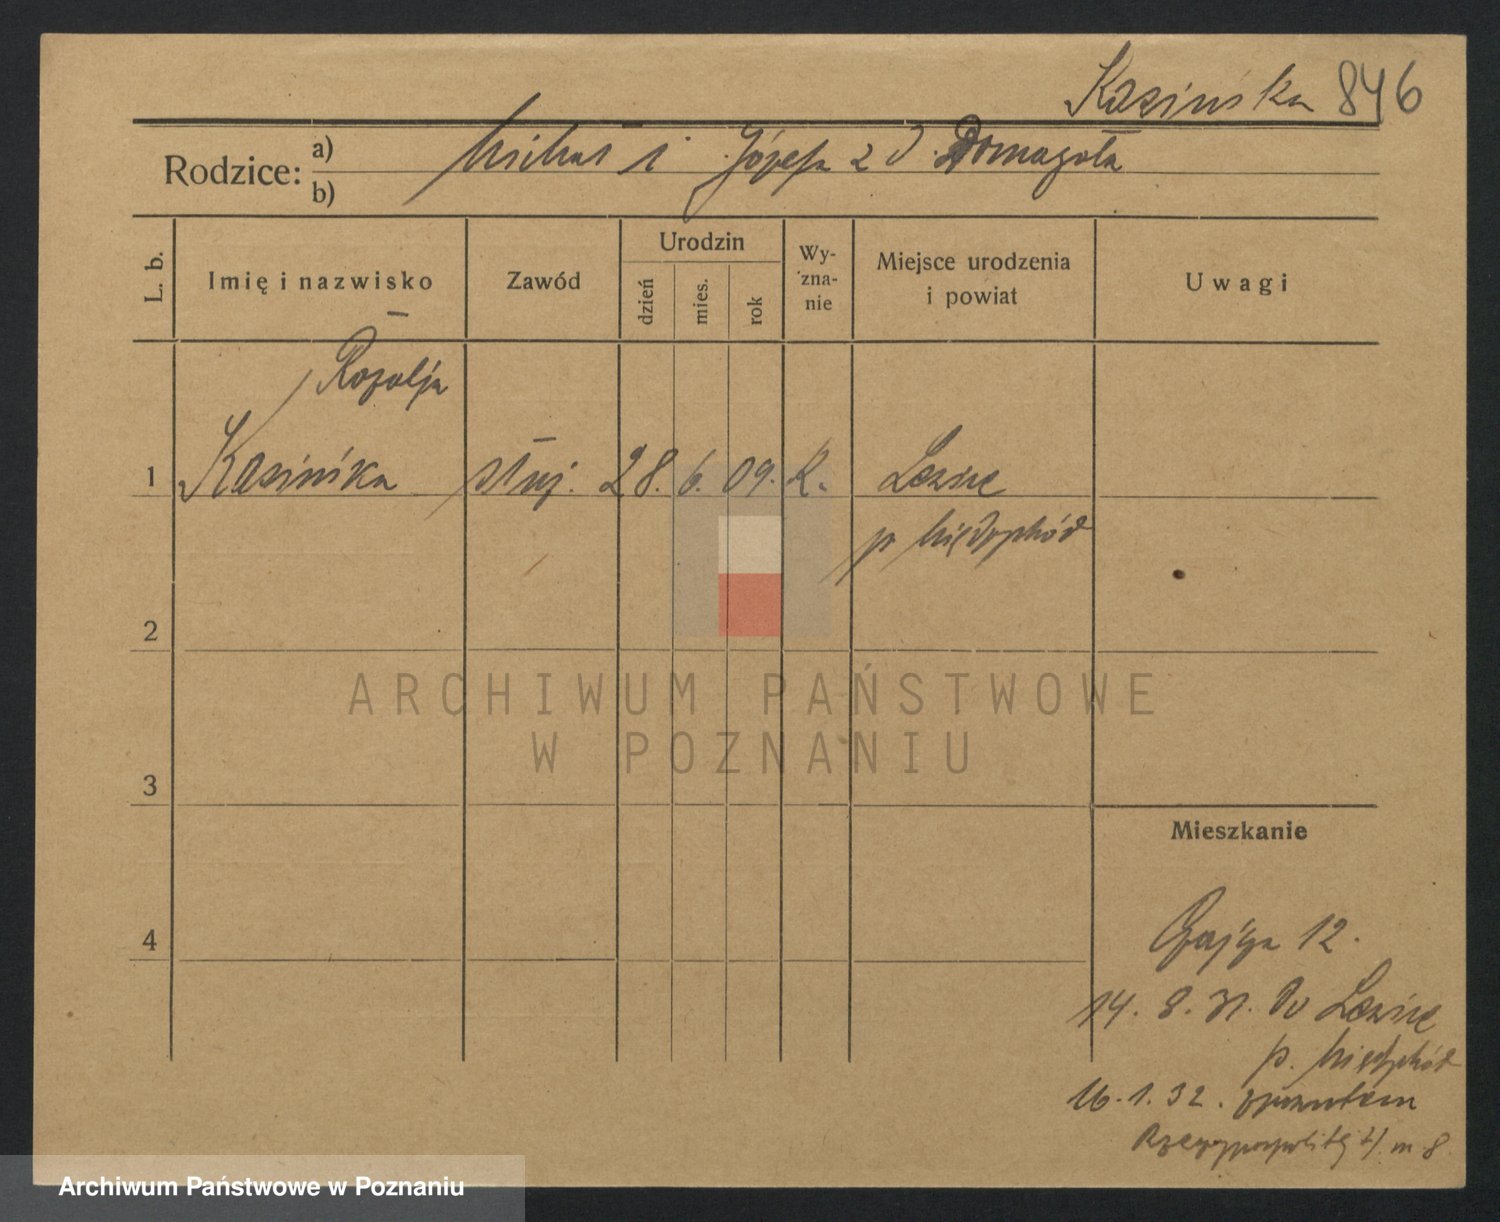 Kasińska 846
Rodzice: a) Michał i Józefa z d. Domagała
b)
L. b.
Imię i nazwisko
Zawód
Urodzin
dzień
mies.
rok
Wy-
zna-
nie
Miejsce urodzenia
i powiat
Uwagi
Rozalja
1 Kasińska służ. 28. 6. 09. K.
p Międzychód
2
ARCHIWUM PAŃSTWOWE
W POZNANIU
3
Mieszkanie
4
12.
14. 8. 31. do
p. Międzychód
16. 1. 32.
Rzeczypospolitej m 8
Archiwum Państwowe w Poznaniu